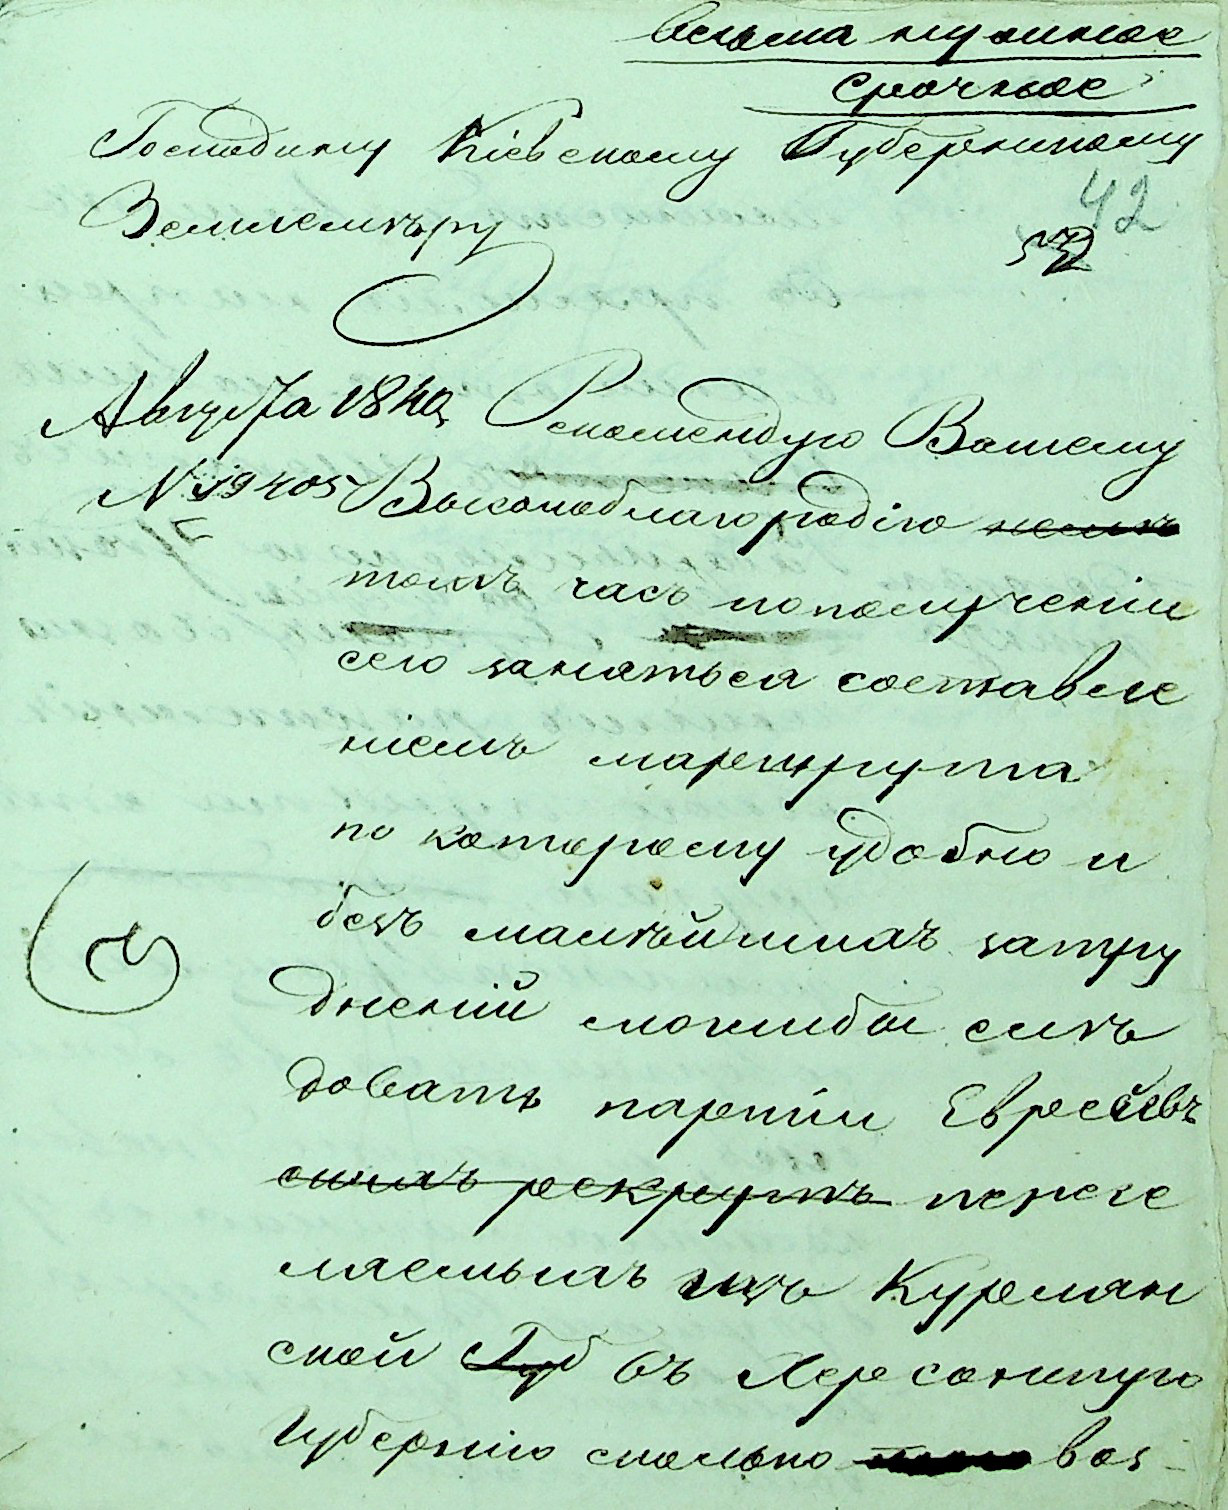 весьма нужное
срочное
Господину Кіевскому Губернскому
Землемѣру
42
Августа 1840
Рекомендую Вашему
№ 19405 Высокоблагородію
тотъ часъ по полученіи
сего заняться составле
ніемъ маршрута
по которому удобно и
безъ малѣйшихъ затру
дненій моглибы слѣ
довать партіи Евреевъ
сихъ рекрутъ пересе
ляемыхъ изъ Курлян
ской Губ въ Херсонскую
Губернію сколько воз